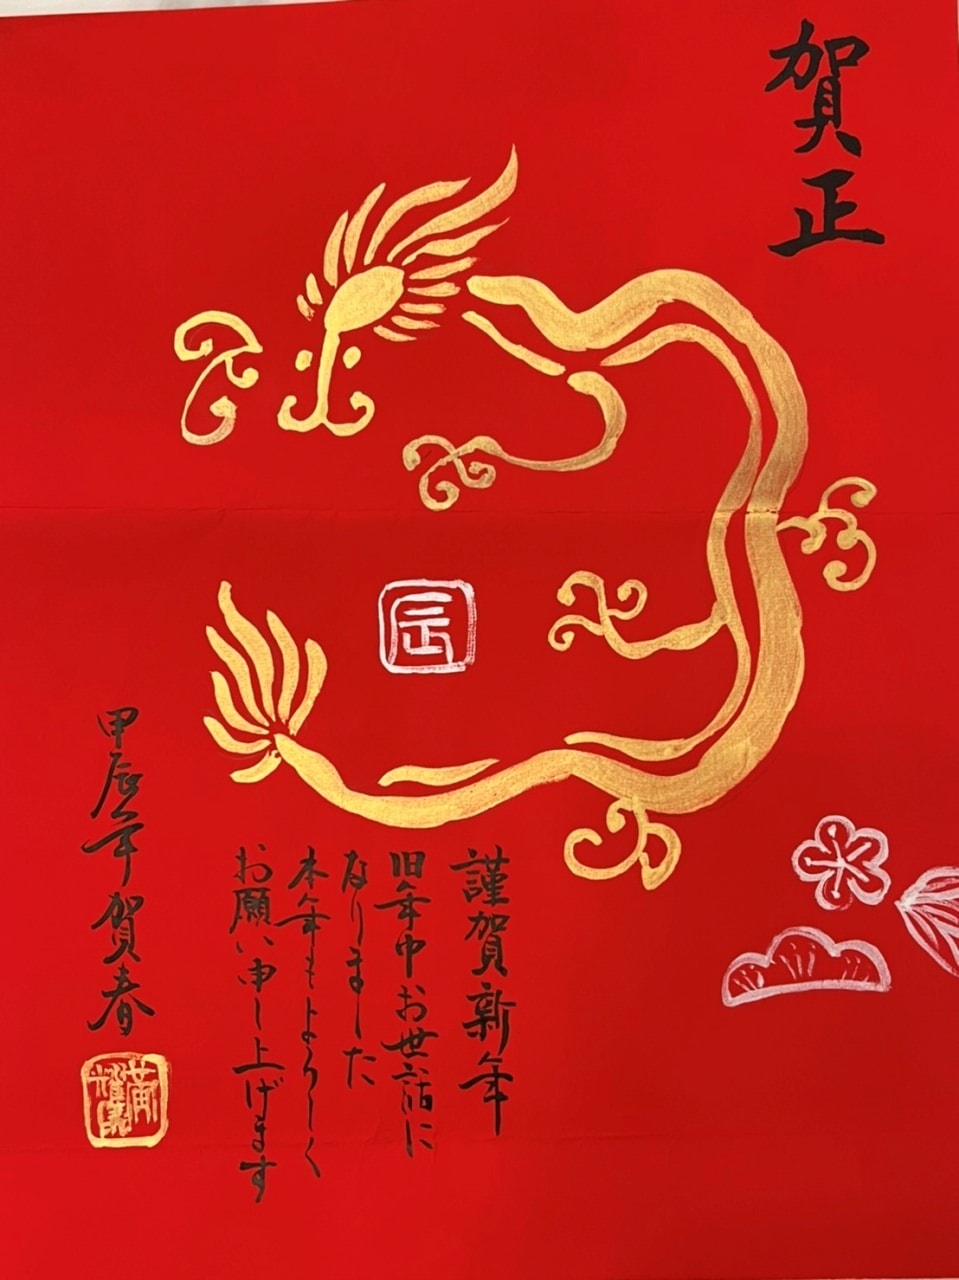 賀正
辰
謹賀新年
旧年中お世話に
なりました
本年もよろしく
お願い申し上げます
甲辰年賀春
黄